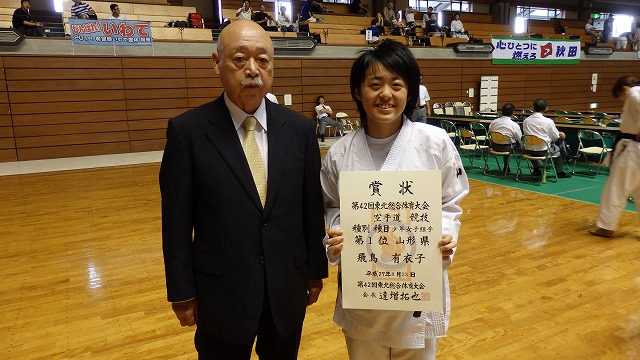 いわて
心ひとつに
燃えろ
秋田
賞状
第42回東北総合体育大会
空手道 競技
種別 種目 少年女子組手
第1位 山形県
飛鳥 有衣子
平成27年8月23日
第42回東北総合体育大会
会長 達増拓也